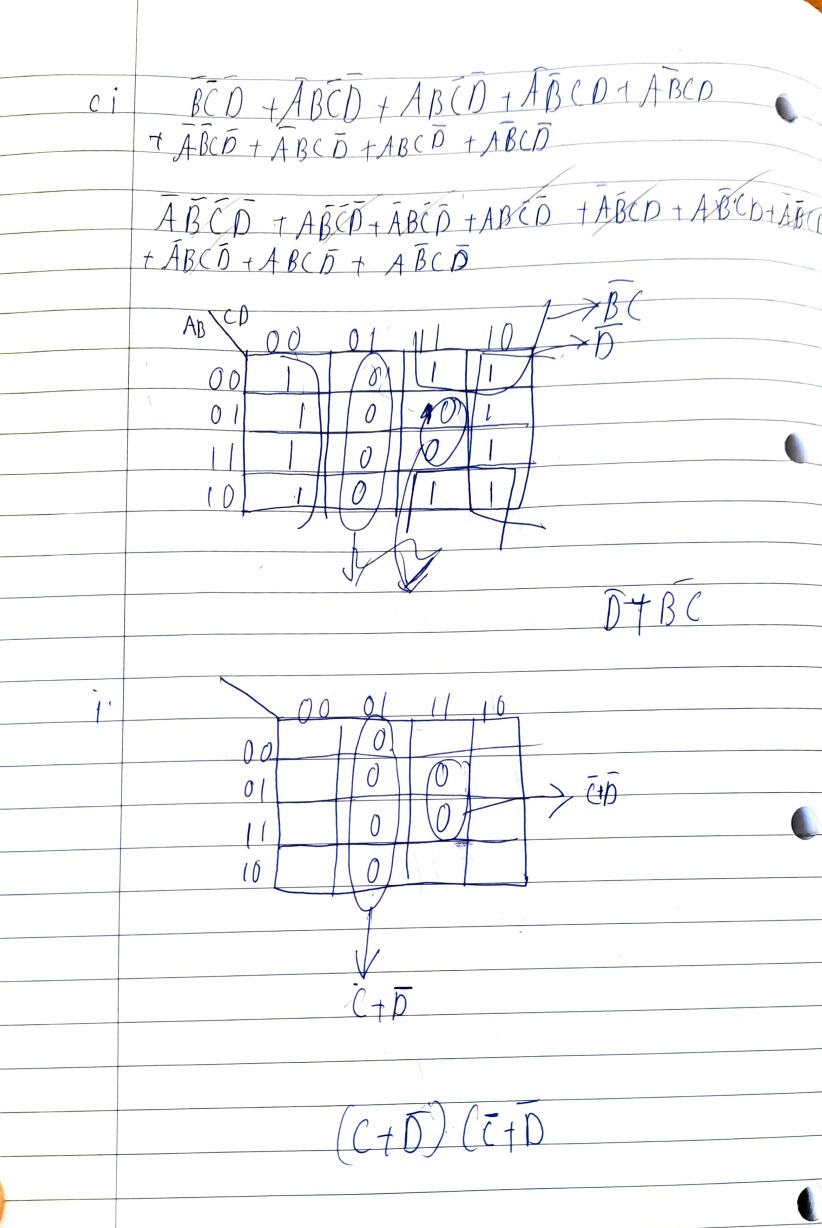 ci B̄C̄D̄ + ĀBC̄D̄ + ABC̄D̄ + ĀB̄CD + AB̄CD
+ ĀB̄CD̄ + ĀBCD̄ + ABCD̄ + AB̄CD̄
ĀB̄C̄D̄ + AB̄C̄D̄ + ĀBC̄D̄ + ABC̄D̄ + ĀB̄CD + AB̄CD + ĀB̄C
+ ĀBCD̄ + ABCD̄ + AB̄CD̄
B̄C
AB CD
00 01 11 10 D̄
00 1 0 1 1
01 1 0 0 1
11 1 0 0 1
10 1 0 1 1
D̄+B̄C
i.
00 01 11 10
00 0
01 0 0
C̄+D̄
11 0 0
10 0
C+D̄
(C+D̄) (C̄+D̄